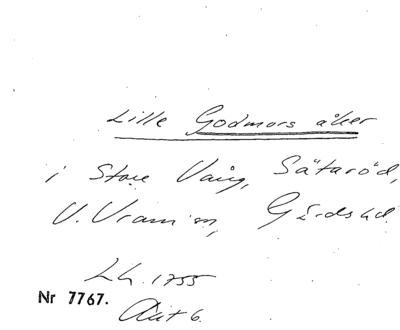 Lille Godmors åker
i Store Vång, Sätaröd,
V. Vram sn, Gärds hd.
Lh. 1755
Nr 7767.
Akt 6.